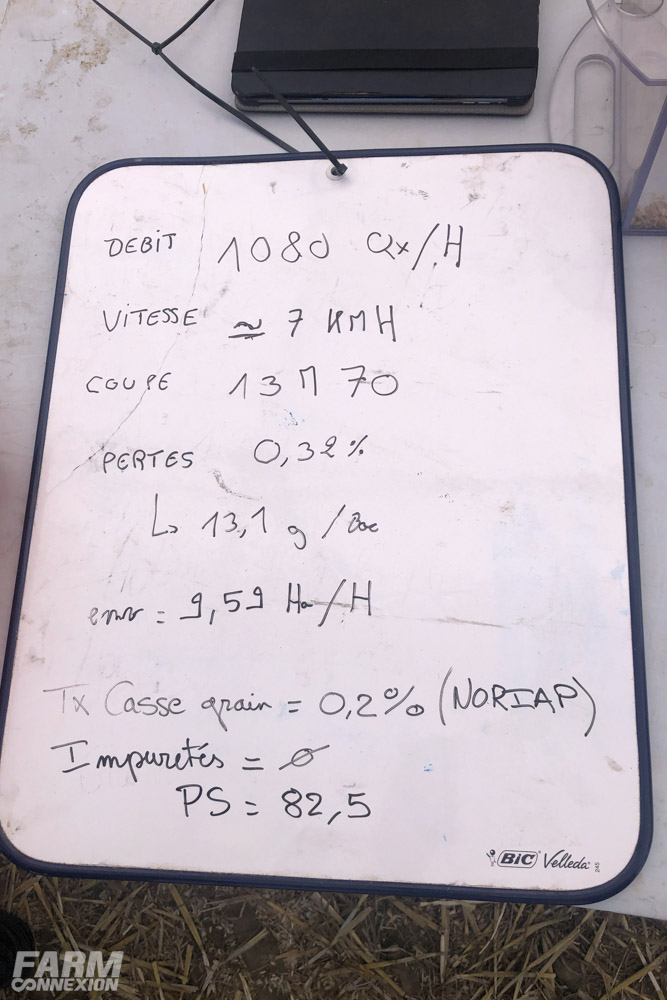 DEBIT 1080 Qx/H
VITESSE ≃ 7 KMH
COUPE 13M70
PERTES 0,32%
↳ 13,1 g / Bac
env = 9,59 Ha/H
Tx Casse grain = 0,2% (NORIAP)
Impuretés = ∅
PS = 82,5
BIC Velleda
FARM
CONNEXION